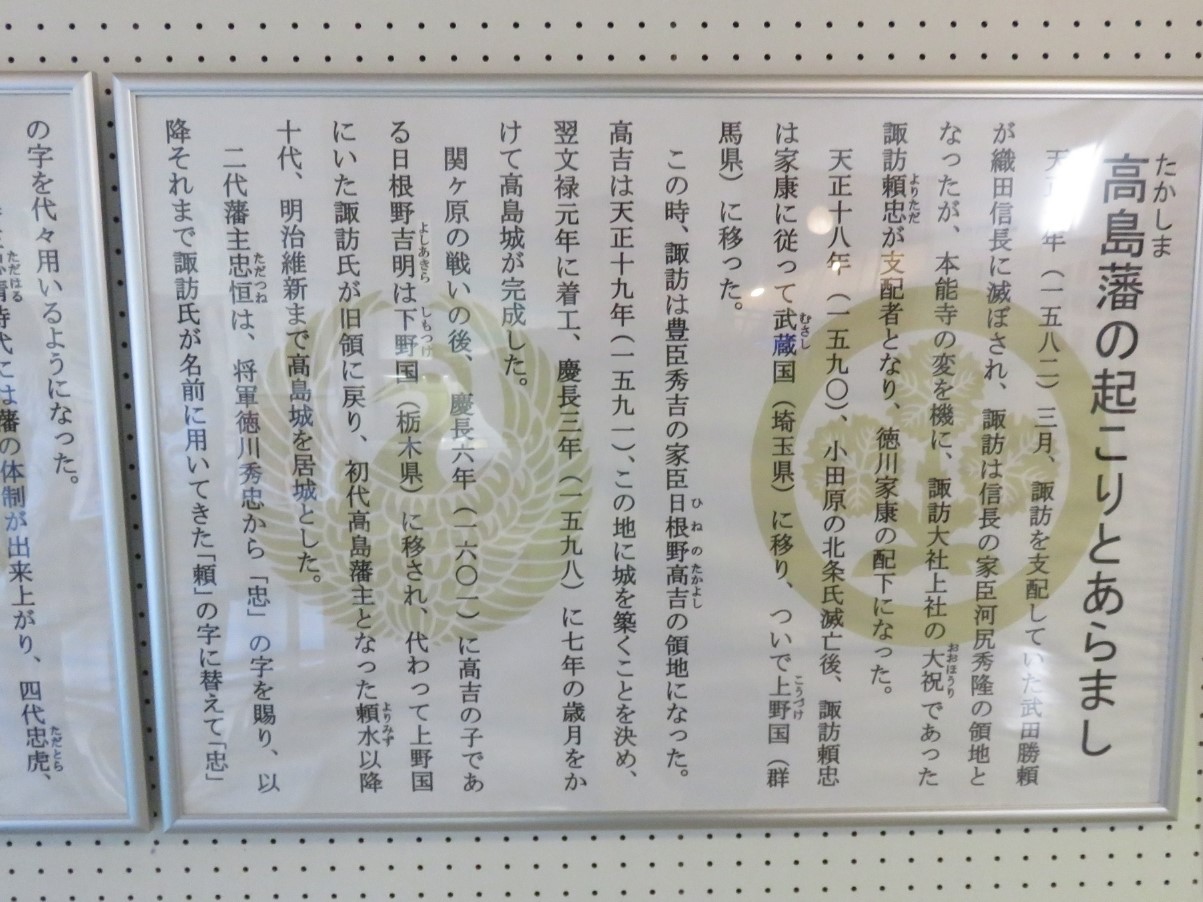 高島藩の起こりとあらまし
たかしま
天 年（一五八二）三月、諏訪を支配していた武田勝頼
が織田信長に滅ぼされ、諏訪は信長の家臣河尻秀隆の領地と
なったが、本能寺の変を機に、諏訪大社上社の大祝であった
おおほうり
諏訪頼忠が支配者となり、徳川家康の配下になった。
よりただ
天正十八年（一五九〇）、小田原の北条氏滅亡後、諏訪頼忠
は家康に従って武蔵国（埼玉県）に移り、ついで上野国（群
むさし
こうづけ
馬県）に移った。
この時、諏訪は豊臣秀吉の家臣日根野高吉の領地になった。
ひねのたかよし
高吉は天正十九年（一五九一）、この地に城を築くことを決め、
翌文禄元年に着工、慶長三年（一五九八）に七年の歳月をか
けて高島城が完成した。
関ヶ原の戦いの後、慶長六年（一六〇一）に高吉の子であ
る日根野吉明は下野国（栃木県）に移され、代わって上野国
よしあきら
しもつけ
にいた諏訪氏が旧領に戻り、初代高島藩主となった頼水以降
よりみず
十代、明治維新まで高島城を居城とした。
二代藩主忠恒は、将軍徳川秀忠から「忠」の字を賜り、以
ただつね
降それまで諏訪氏が名前に用いてきた「頼」の字に替えて「忠」
の字を代々用いるようになった。
時代には藩の体制が出来上がり、四代忠虎、
ただはる
ただとら